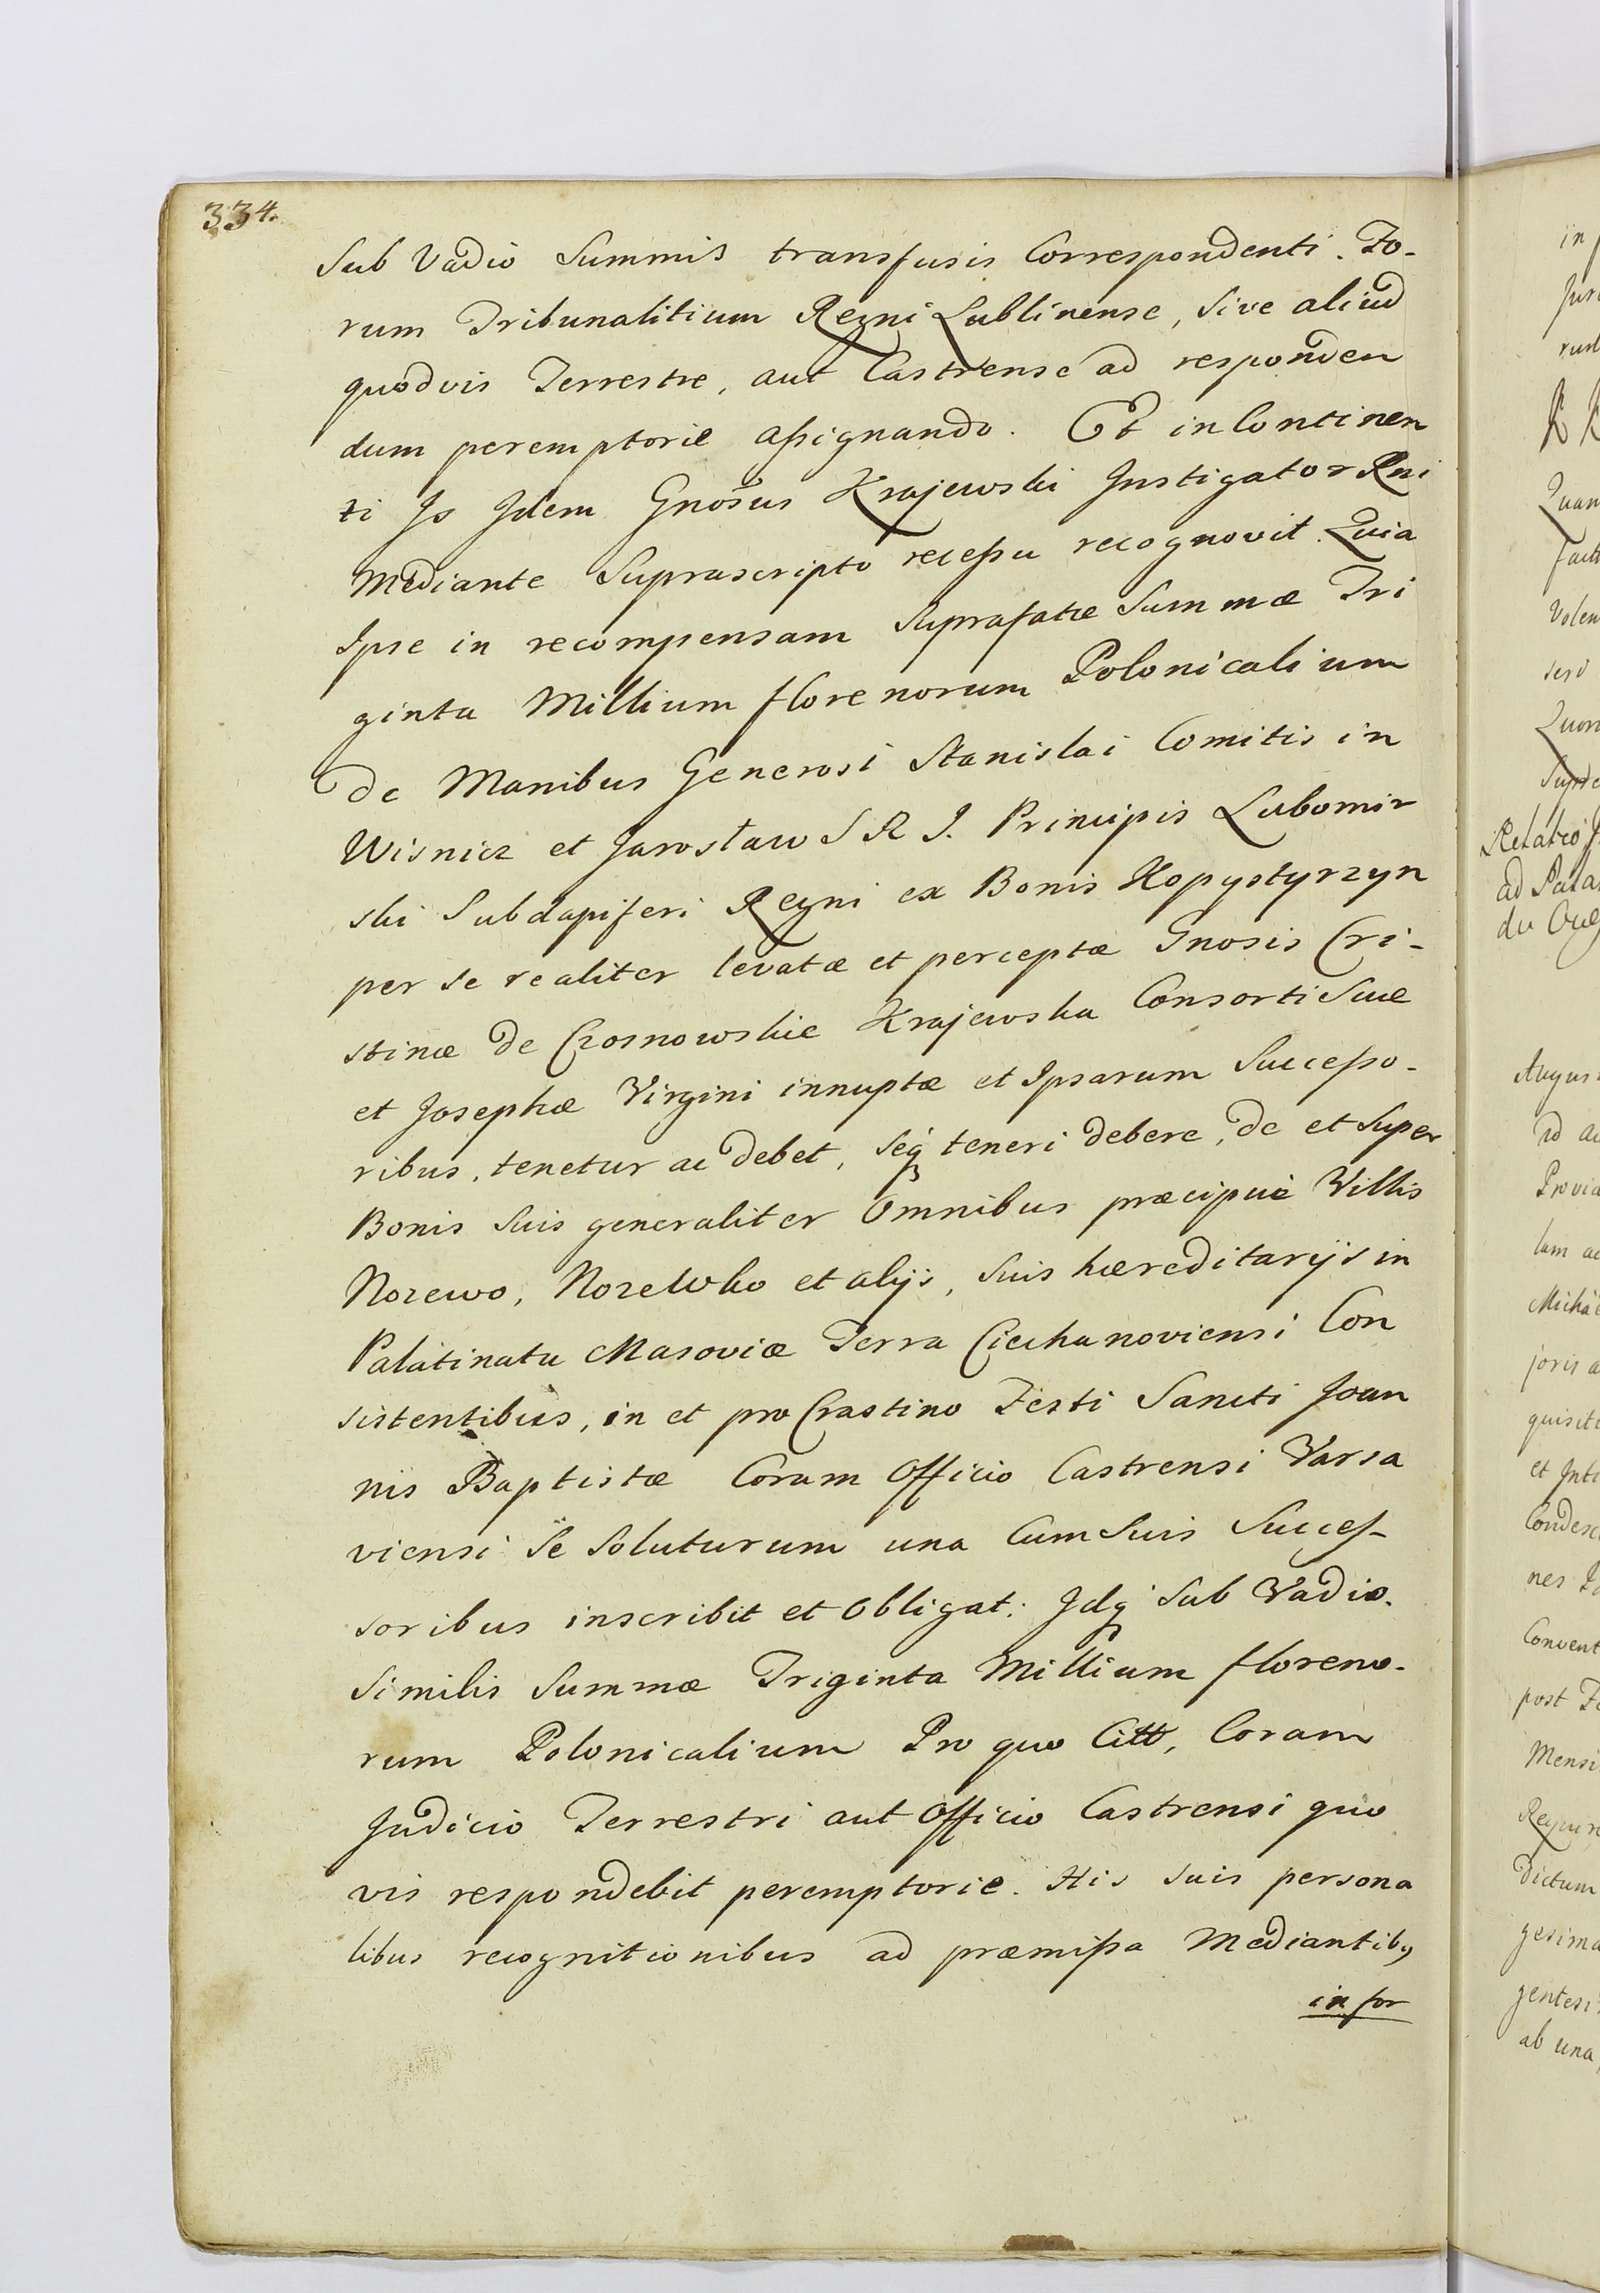 334.
Sub Vadio Summis transfusis Correspondenti. Fo-
rum Tribunalitium Regni Lublinense, sive aliud
quodvis Terrestre, aut Castrense ad responden
dum peremptorie assignando. Et in Continen
ti Is Idem Gnosus Krajewski Instigator Rni
mediante Suprascripto recessu recognovit. Quia
Ipse in recompensam Suprafatæ Summæ Tri
ginta Millium florenorum Polonicalium
de Manibus Generosi Stanislai Comitis in
Wisnicz et Jarosław S R J. Principis Lubomir
ski Subdapiferi Regni ex Bonis Kopystyrzyn
per se realiter levatæ et perceptæ Gnosis Cri-
stinæ de Czosnowskie Krajewska Consorti Suæ
et Josephæ Virgini innuptæ et Ipsarum Successo-
ribus, tenetur ac debet, seq teneri debere, de et Super
Bonis Suis generaliter Omnibus præcipue Villis
Nozewo, Nozewko et alijs, suis hæreditarijs in
Palatinatu Masoviæ Terra Ciechanoviensi Con
sistentibus, in et pro Crastino Festi Sancti Joan
nis Baptistæ Coram Officio Castrensi Varsa
viensi Se Soluturum una Cum Suis Succes-
soribus inscribit et Obligat: Idq Sub Vadio.
Similis Summæ Triginta Millium floreno-
rum Polonicalium Pro quo Citt, Coram
Judicio Terrestri aut Officio Castrensi quo
vis respondebit peremptorie. His suis persona
libus recognitionibus ad præmissa Mediantibq
in for
in
rud
Quan
Volen
Quor
Relatio
ad Pala
du
Augus
id
Provid
lam
Micha
joris
quisiti
et Inti
Condes
nes
Convent
post
Mensi
Requi
dictum
gesima
gentesi
ab una,